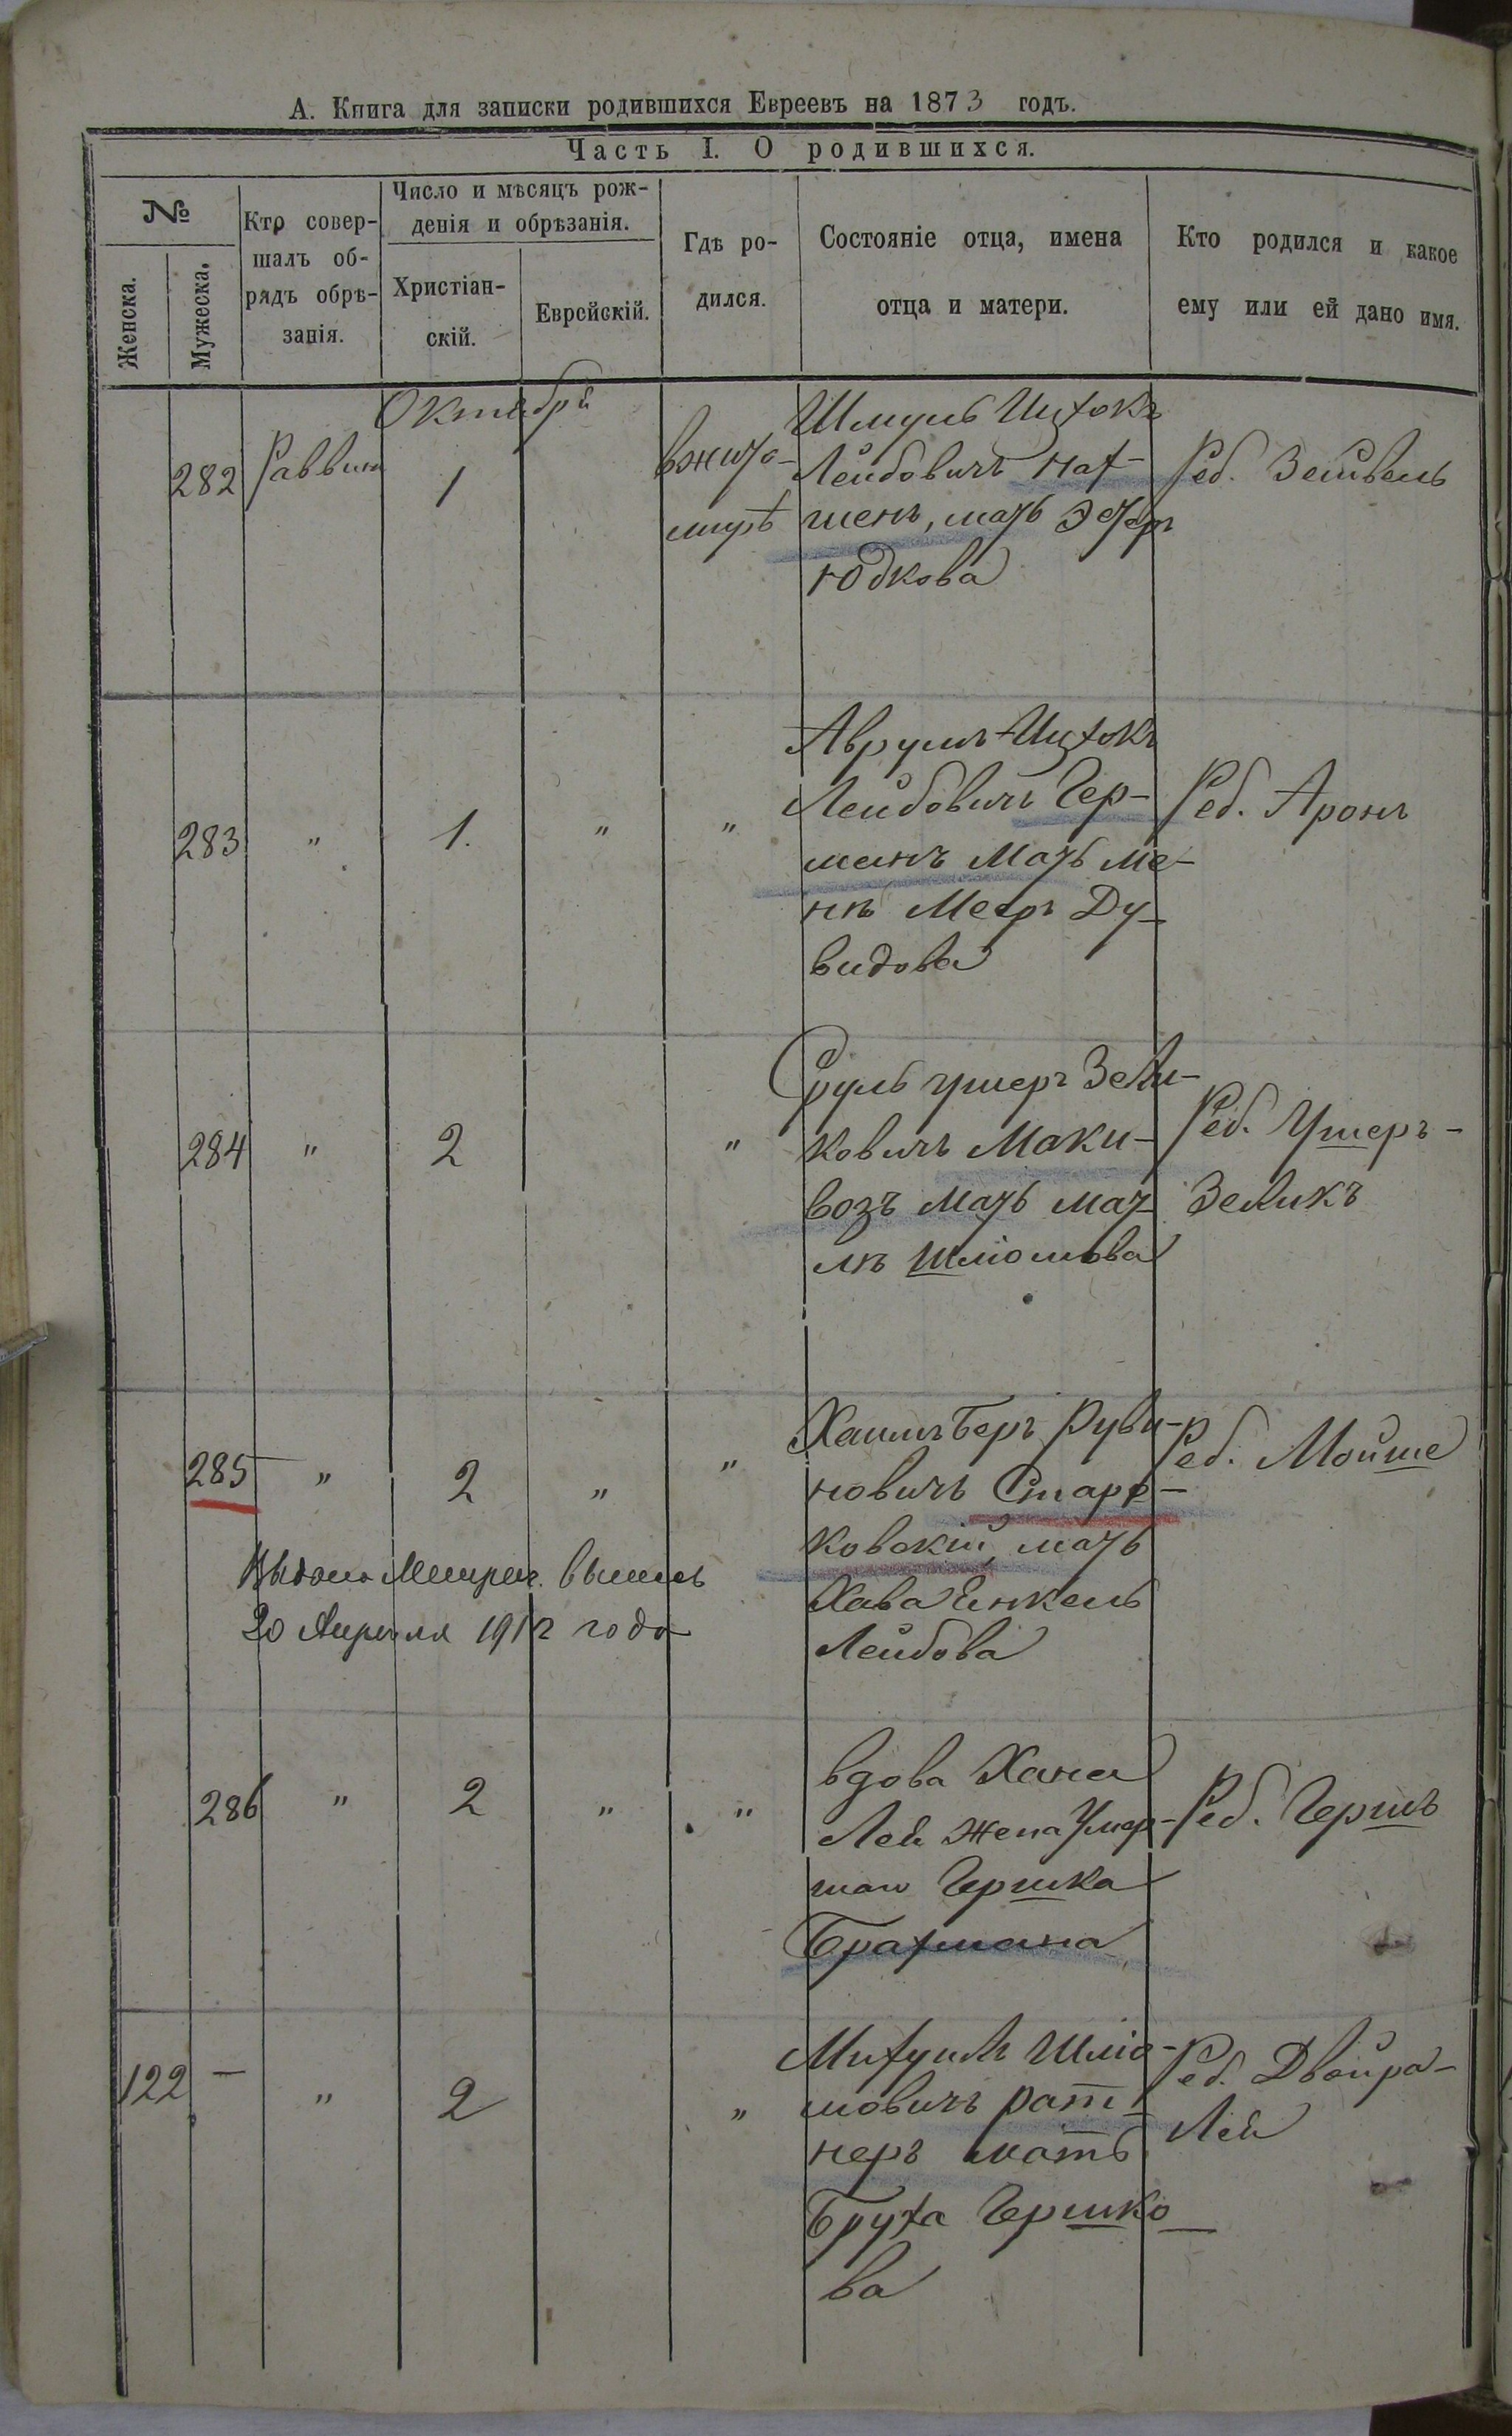 А. Книга для записки родившихся Евреевъ на 1873 годъ.
Часть I. О родившихся.
№
Женска.
Мужеска.
Кто совер-
шалъ об-
рядъ обрѣ-
занія.
Число и мѣсяцъ рож-
денія и обрѣзанія.
Христіан-
скій.
Еврейскій.
Гдѣ ро-
дился.
Состояніе отца, имена
отца и матери.
Кто родился и какое
ему или ей дано имя.
Октября
282 Раввин 1
вжито-
мирѣ
Шмуль Ицхокъ
Лейбовичъ Нах-
манъ, мать Эстеръ
Юдкова
Реб. Зейвель
283 " 1. " "
Аврумъ-Ицхокъ
Лейбовичъ Гер-
манъ мать Ме-
ня Меръ Ду-
видова
Реб. Аронъ
284 " 2 "
Сруль Ушеръ Зели-
ковичъ Маки-
возъ мать Мат-
ля Шліомова
Реб. Ушеръ-
Зеликъ
285 " 2 " "
Хаимъ Беръ Руви-
новичъ Старо-
ковскій, мать
Хава Енкель
Лейбова
Реб. Мойше
Выдана Метрич. выпись
20 Апреля 1912 года
286 " 2 " "
вдова Хана
Лея жена Умер-
шаго Гершка
Брахмана
Реб. Гершъ
122 — " 2 "
Михуилъ Шліо-
мовичъ Рат-
неръ мать
Бруха Гершко-
ва
Реб. Двойра-
Лея